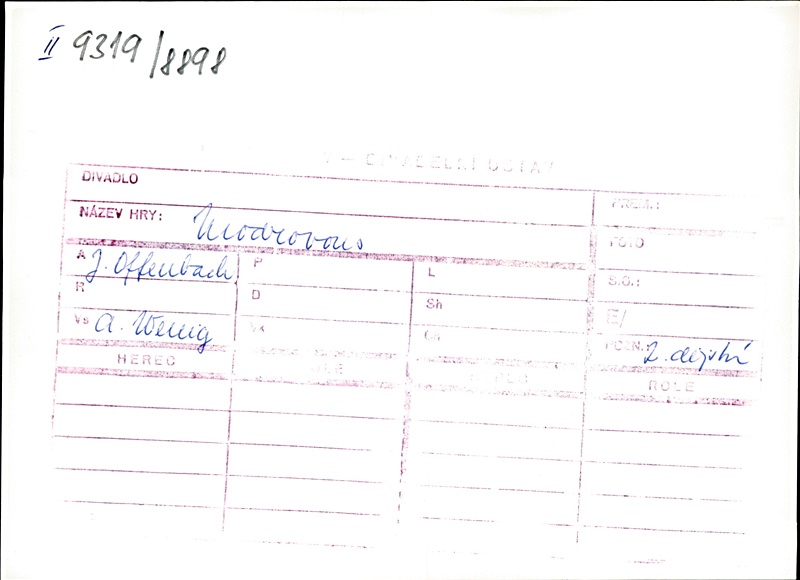 II 9319/8898
DIVADELNÍ ÚSTAV
DIVADLO
PREM.:
NÁZEV HRY: Modrovous
FOTO
A J. Offenbach P L
S.O.:
R D Sh
E/
Vs A. Wenig
POZN.: 2. dějství
HEREC ROLE
ROLE